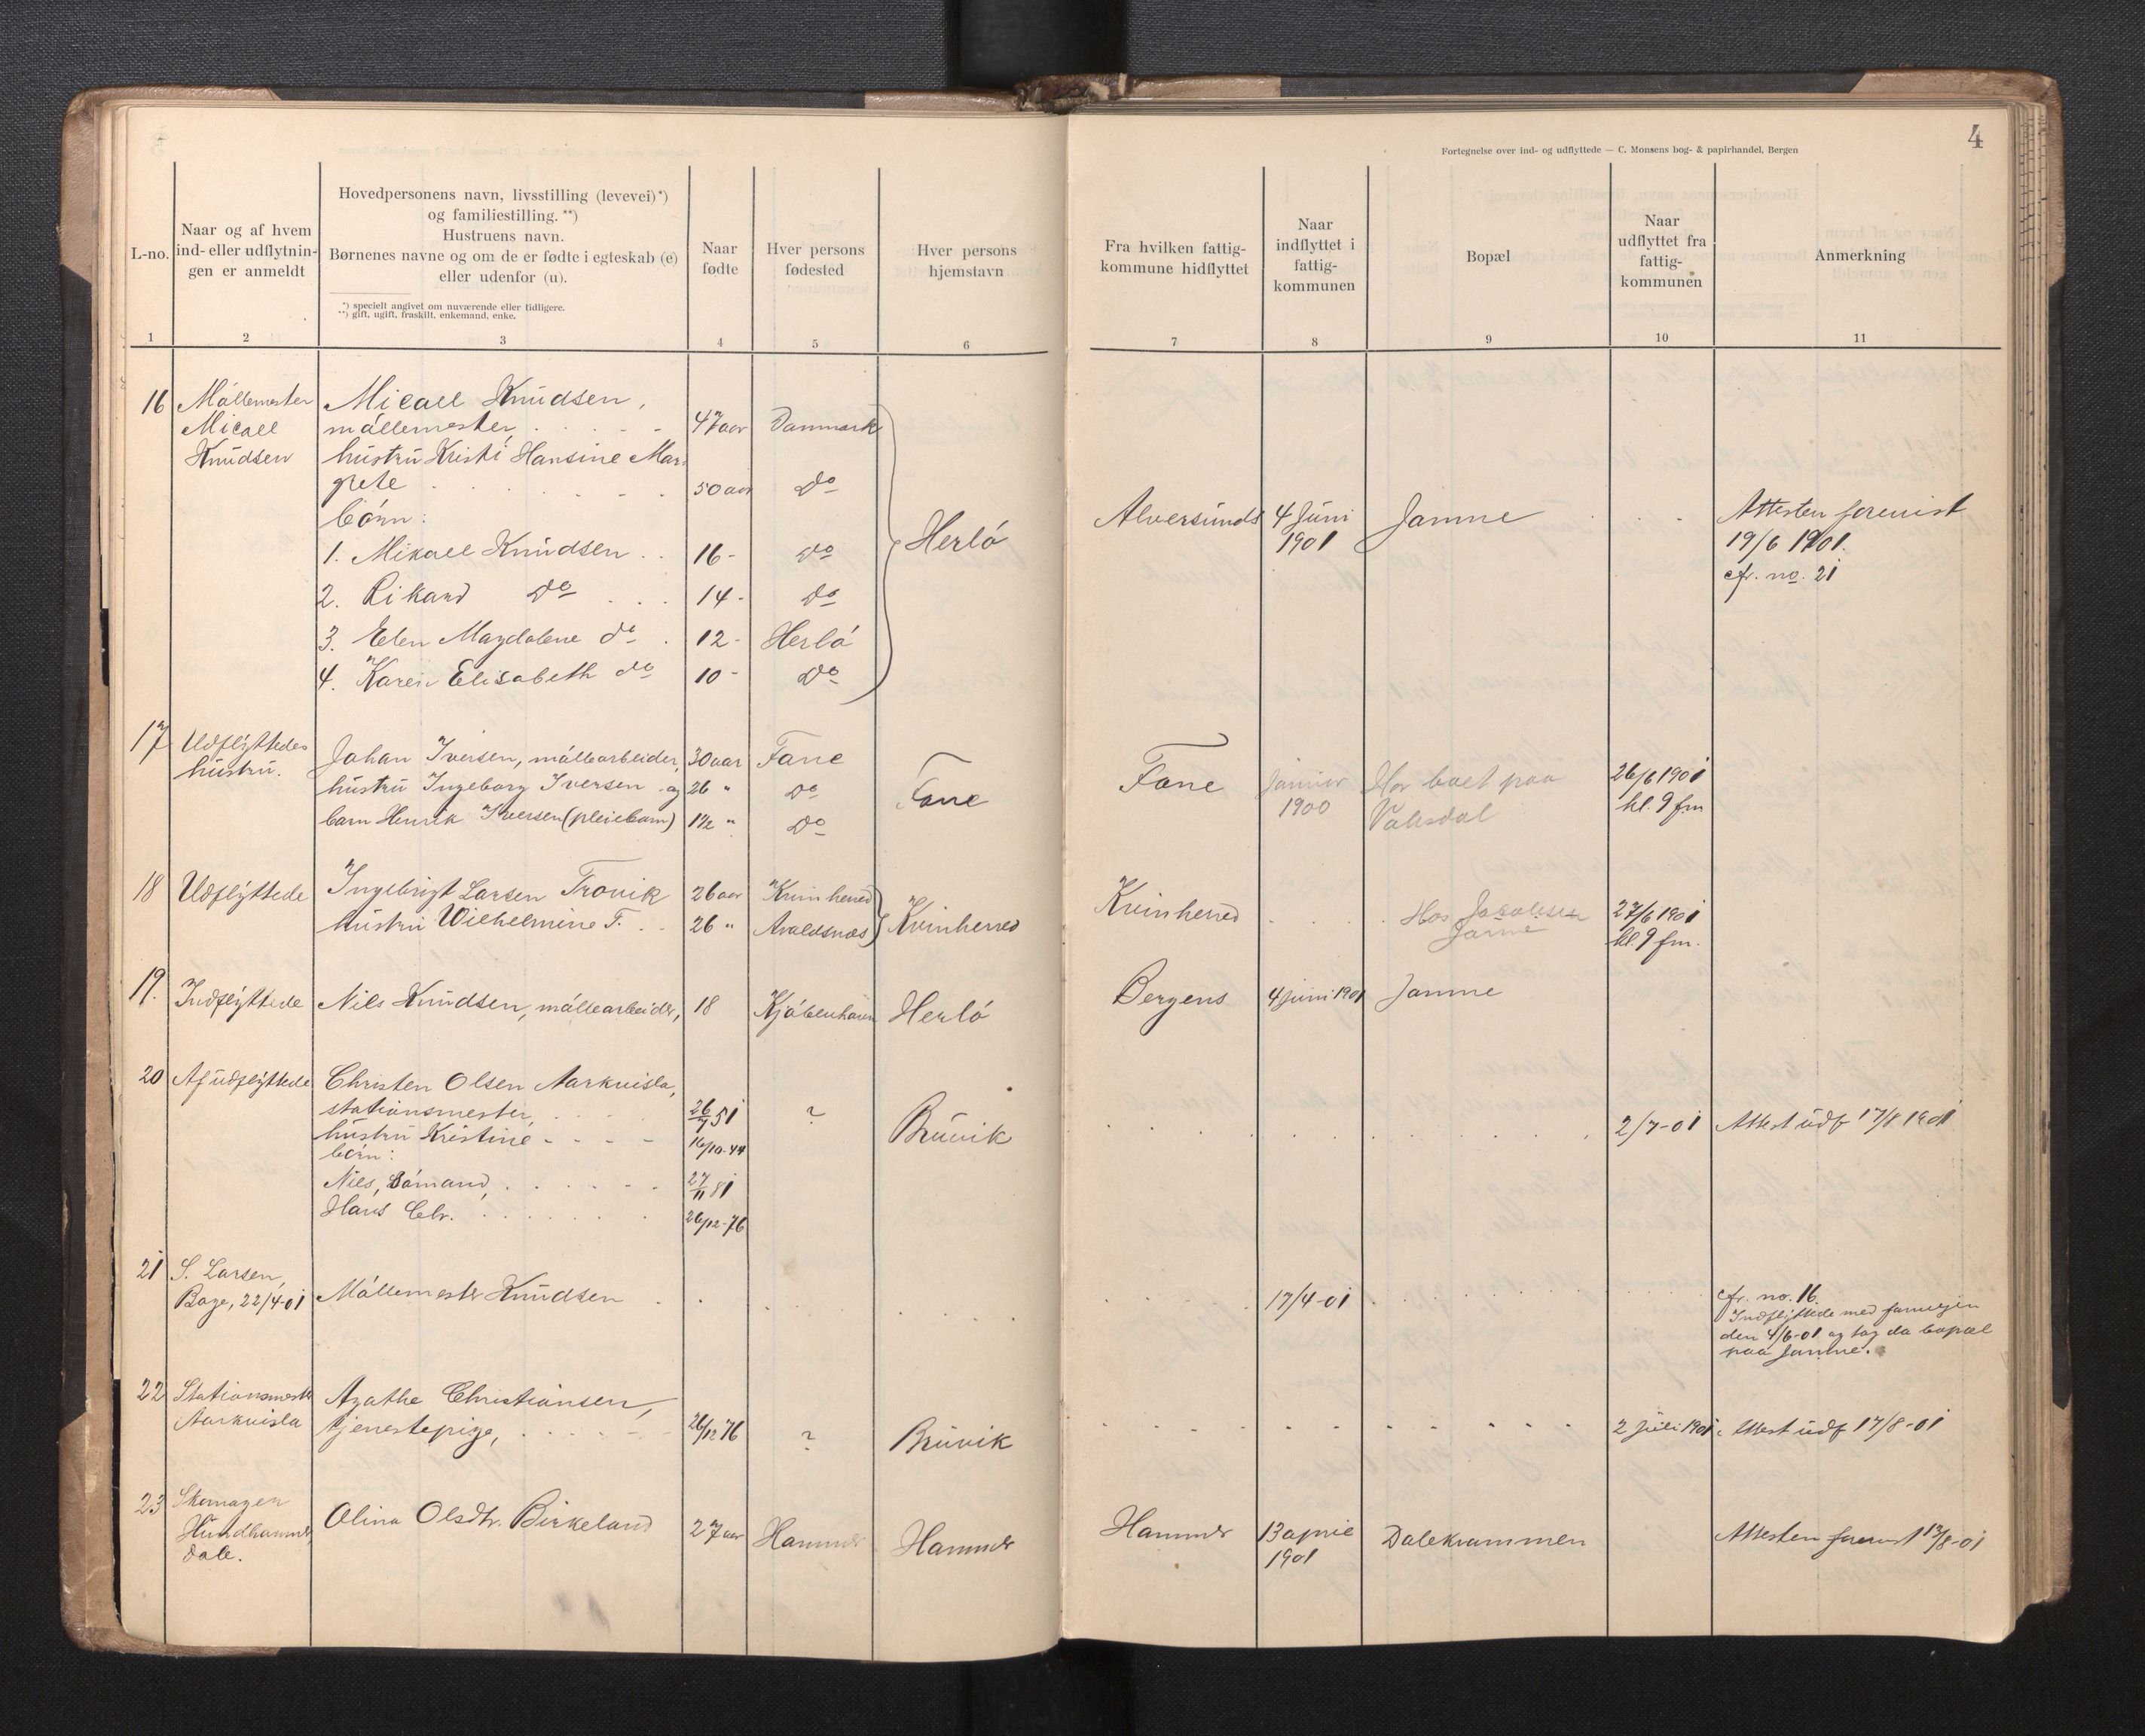 4
Fortegnelse over ind- og udflyttede — C. Monsens bog- & papirhandel, Bergen
L-no.
Naar og af hvem
ind- eller udflytnin-
gen er anmeldt
Hovedpersonens navn, livsstilling (levevei)*)
og familiestilling. **)
Hustruens navn.
Børnenes navne og om de er fødte i egteskab (e)
eller udenfor (u).
*) specielt angivet om nuværende eller tidligere.
**) gift, ugift, fraskilt, enkemand, enke.
Naar
fødte
Hver persons
fødested
Hver persons
hjemstavn
Fra hvilken fattig-
kommune hidflyttet
Naar
indflyttet i
fattig-
kommunen
Bopæl
Naar
udflyttet fra
fattig-
kommunen
Anmerkning
1 2 3 4 5 6 7 8 9 10 11
16
Møllemester
Micael
Knudsen
Micael Knudsen,
møllemester
47 aar Danmark
hustru Kristi Hansine Mar-
grete
50 aar do
børn:
1. Mikael Knudsen 16 - do
2. Rikard do 14 - do
3. Elen Magdalene do 12 - Herlø
4. Karen Elisabeth do 10 - do
Herlø
Alversunds
4 Juni
1901
Jamne
Attesten forevist
19/6 1901.
cfr. no. 21
17
Udflyttedes
hustru.
Johan Iversen, møllearbeider, 30 aar Fane
hustru Ingeborg Iversen og 26 " do
barn Henrik Iversen (pleiebarn) 1½ " do
Fane
Fane
Januar
1900
Har boet paa
Vaksdal
26/6 1901
kl. 9 fm
18
Udflyttede
Ingebrigt Larsen Trovik 26 aar Kvinherred
hustru Wilhelmine T. 26 " Avaldsnæs
Kvinherred
Kvinherred
Hos Jacobsen
Jamne
27/6 1901
kl. 9 fm.
19.
Indflyttede
Nils Knudsen, møllearbeider, 18 Kjøbenhavn Herlø
Bergens 4 juni 1901 Jamne
20
Af udflyttede
Christen Olsen Aarkvisla,
stationsmester 26/7 51 ?
hustru Kristine 16/10-44
børn:
Nils, Sømand, 27/11 81
Hans Chr. 26/12-76
Brüvik
2/7-01 Attest udf 17/8 1901
21
S. Larsen,
Boge, 22/4-01
Møllemester Knudsen
17/4-01
cfr. no. 16.
Indflyttede med familjen
den 4/6-01 og tog da bopæl
paa Jamne.
22
Stationsmester
Aarkvisla
Agathe Christiansen,
tjenestepige, 26/12 76 ? Brüvik
2 Juli 1901. Attest udf 17/8-01
23
Skomager
Hundhammer,
Dale.
Olina Olsdtr. Birkeland 27 aar Hammer Hammer
Hammer
13 april
1901
Dalekrammen
Attesten forevist 13/8-01